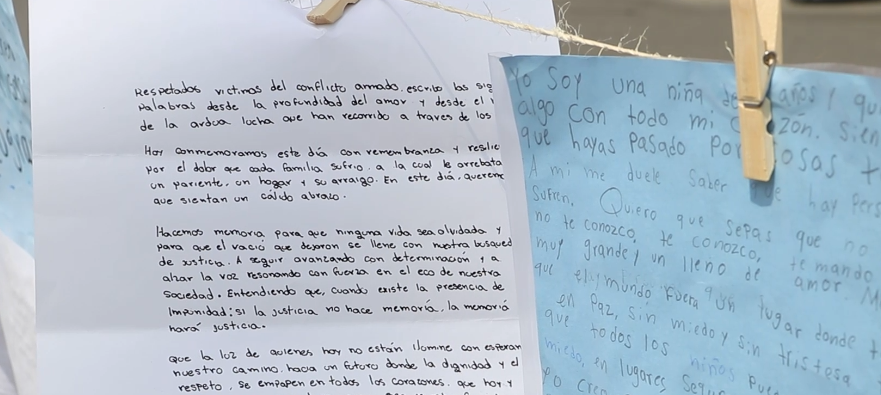 Respetados victimas del conflicto armado, escribo las sig
Palabras desde la profundidad del amor y desde el
de la ardua lucha que han recorrido a traves de los
Hoy conmemoramos este día con remembranza y resilie
por el dolor que cada familia sufrio, a la cual le arrebata
un pariente, un hogar y su arraigo. En este día, querem
que sientan un cálido abrazo.
Hacemos memoria para que ninguna vida sea olvidada y
para que el vació que dejaron se llene con nuestra busqued
de justicia. A seguir avanzando con determinación y a
alzar la voz resonando con fuerza en el eco de nuestra
sociedad. Entendiendo que, cuando existe la presencia de
Impunidad; si la justicia no hace memoría, la memoriá
hará justicia.
Que la luz de quienes hoy no están ilumine con esperan
nuestro camino, hacia un futuro donde la dignidad y el
respeto, se empapen en todos los corazones, que hoy y
Yo Soy una niña de años y qu
algo con todo mi zón. sien
que hayas pasado por osas t
A mi me duele saber que hay pers
sufren, Quiero que sepas que no
no te conozco, te conozco, te mando
muy grande y un lleno de amor. M
que el mundo fuera un lugar donde t
en paz, sin miedo y sin tristesa
que todos los niños pue
miedo, en lugares segu
yo cre